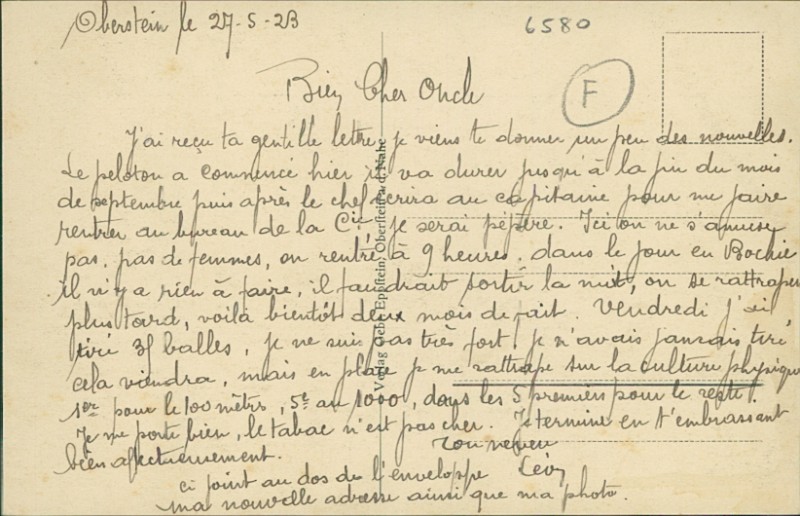 Oberstein le 27-5-23
6580
F
Bien Cher Oncle
J'ai reçu ta gentille lettre, je viens te donner un peu des nouvelles.
Le peloton a commencé hier il va durer jusqu'à la fin du mois
de septembre puis après le chef écrira au capitaine pour me faire
rentrer au bureau de la Cie, je serai pépère. Ici on ne s'amuse
pas, pas de femmes, on rentre à 9 heures, dans le jour en Bochie
il n'y a rien à faire, il faudrait sortir la nuit, on se rattrapera
plus tard, voilà bientôt deux mois de fait. Vendredi j'ai
tiré balles, je ne suis pas très fort, je n'avais jamais tiré
cela viendra, mais en place je me rattrape sur la culture physique
1er pour le 100 mètrs, 5e au 1000, dans les 5 premiers pour le reste.
Je me porte bien, le tabac n'est pas cher. Je termine en t'embrassant
bien affectueusement.
Ton neveu
ci joint au dos de l'enveloppe
ma nouvelle adresse ainsi que ma photo.
Verlag Gebr. Eppstein, Oberstein a. d. Nahe